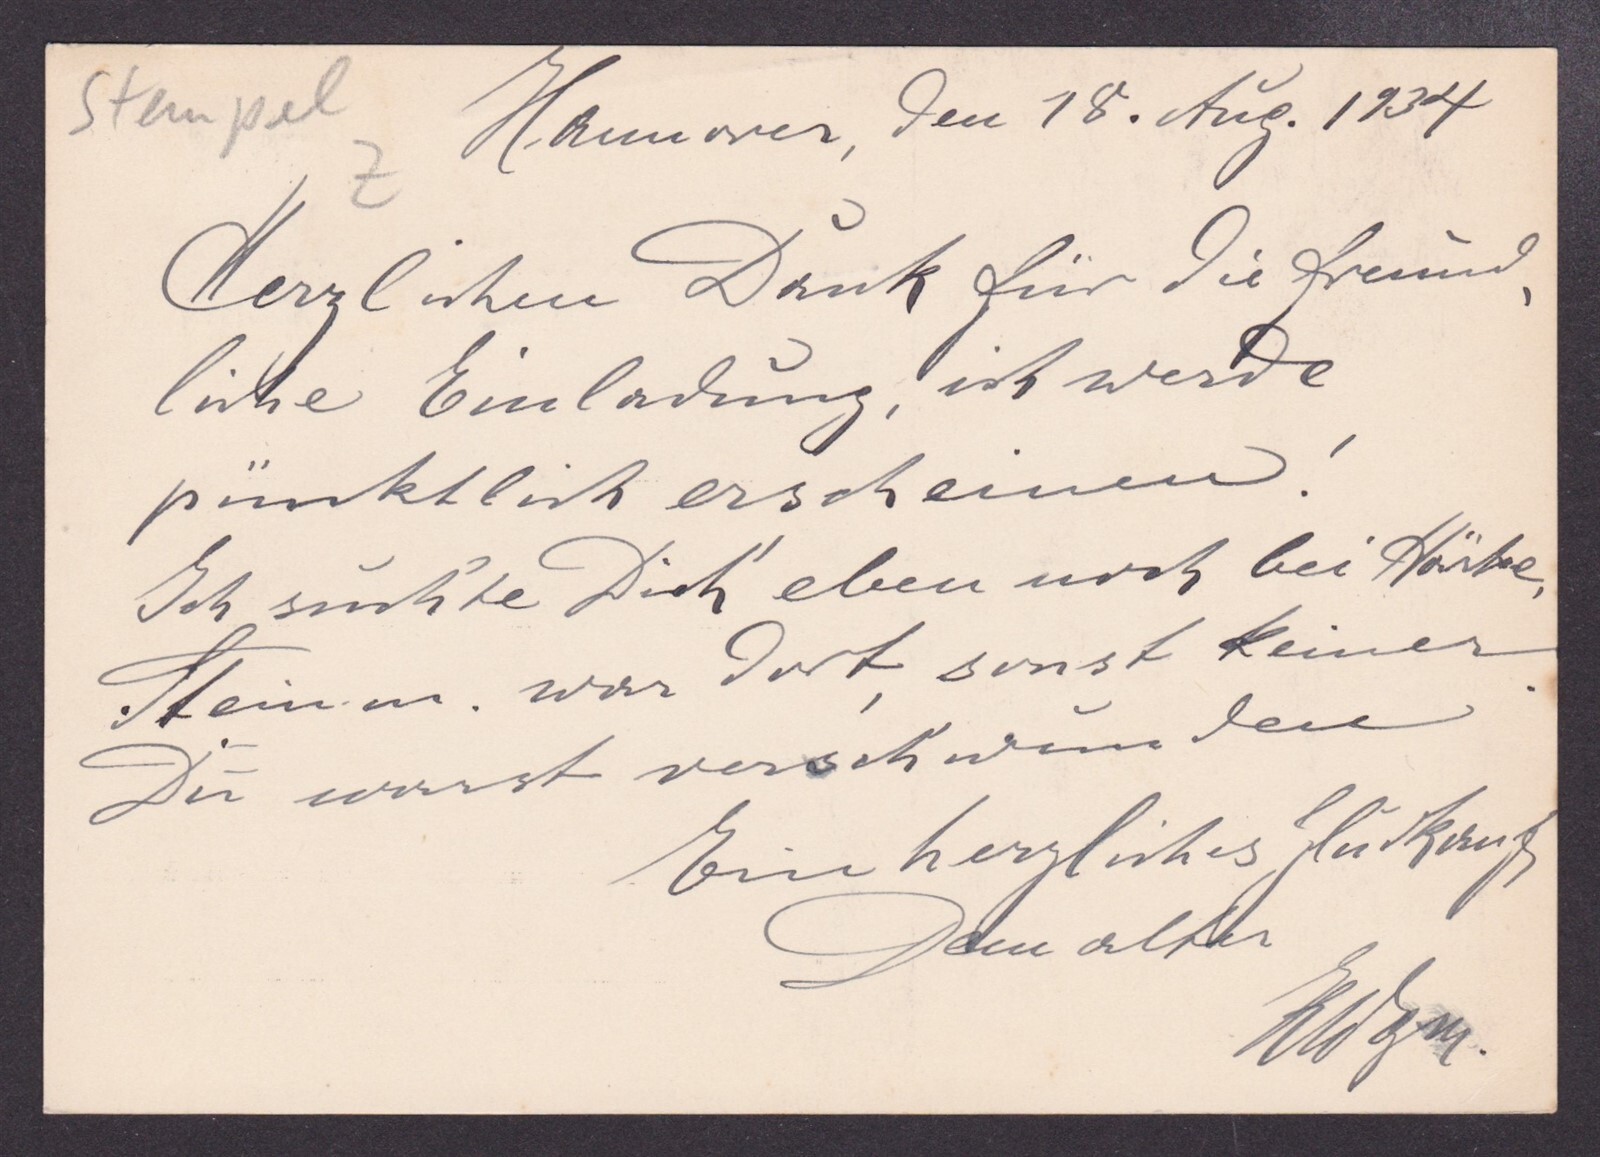 Stempel
Z
Hannover, den 18. Aug. 1934
Herzlichen Dank für die freund,
liche Einladung, ich werde
pünktlich erscheinen!
Ich suchte Dich eben noch bei
Steinm. war dort, sonst keiner.
Du warst verschwunden
Ein herzliches Glückauf,
Dein alter